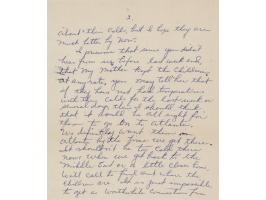 3.
about their colds, but I hope they are
much better by now.
I presume that since you didn't
hear from us before last week end,
that my Mother kept the children.
At any rate, you may tell her that
if they have not had temperatures
with their colds for the last week or
several days then I should think
that it would be all right for
them to go on to Atlanta.
We definitely want them in
Atlanta by the time we get there.
It shouldn't be to call them
now. When we get back to the
Middle East or a little closer home
will call to find out where the
children are. It is just impossible
to get a worthwhile connection from